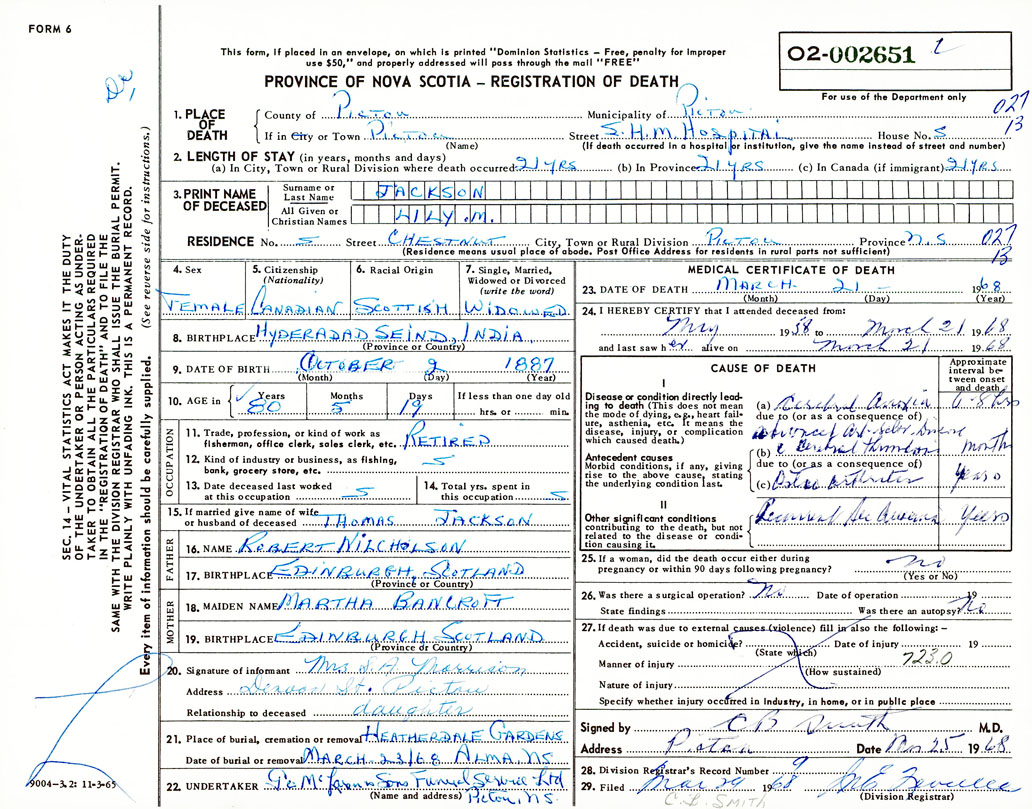 FORM 6
This form, if placed in an envelope, on which is printed "Dominion Statistics – Free, penalty for improper
use $50," and properly addressed will pass through the mail "FREE"
PROVINCE OF NOVA SCOTIA – REGISTRATION OF DEATH
O2-002651
For use of the Department only
027
13
1. PLACE OF DEATH
County of Pictou Municipality of Pictou
If in City or Town Pictou Street S.H.M. Hospital House No. S
(Name) (If death occurred in a hospital or institution, give the name instead of street and number)
2. LENGTH OF STAY (in years, months and days)
(a) In City, Town or Rural Division where death occurred 21 YRS (b) In Province 21 YRS (c) In Canada (if immigrant) 21 YRS
3. PRINT NAME OF DECEASED
Surname or Last Name JACKSON
All Given or Christian Names LILY .M.
RESIDENCE No. S Street CHESTNUT City, Town or Rural Division PICTOU Province N.S
027
13
(Residence means usual place of abode. Post Office Address for residents in rural parts not sufficient)
4. Sex
FEMALE
5. Citizenship
(Nationality)
CANADIAN
6. Racial Origin
SCOTTISH
7. Single, Married,
Widowed or Divorced
(write the word)
WIDOWED
8. BIRTHPLACE HYDERADAD SEIND, INDIA
(Province or Country)
9. DATE OF BIRTH OCTOBER 2 1887
(Month) (Day) (Year)
10. AGE in
Years 80
Months 5
Days 19
If less than one day old
hrs. or min.
OCCUPATION
11. Trade, profession, or kind of work as
fisherman, office clerk, sales clerk, etc. RETIRED
12. Kind of industry or business, as fishing,
bank, grocery store, etc. S
13. Date deceased last worked
at this occupation S
14. Total yrs. spent in
this occupation S
15. If married give name of wife
or husband of deceased THOMAS JACKSON
FATHER
16. NAME ROBERT NILCHOLSON
17. BIRTHPLACE EDINBURGH, SCOTLAND
(Province or Country)
MOTHER
18. MAIDEN NAME MARTHA BANCROFT
19. BIRTHPLACE EDINBURGH SCOTLAND
(Province or Country)
20. Signature of informant Mrs Morrison
Address St. Pictou
Relationship to deceased daughter
21. Place of burial, cremation or removal HEATHERDALE GARDENS
Date of burial or removal MARCH 23/68 ALMA, NS.
22. UNDERTAKER Funeral Service Ltd
(Name and address) Pictou, NS.
MEDICAL CERTIFICATE OF DEATH
23. DATE OF DEATH MARCH 21 1968
(Month) (Day) (Year)
24. I HEREBY CERTIFY that I attended deceased from:
May 1958 to March 21 1968
and last saw her alive on March 21 1968
CAUSE OF DEATH
Approximate interval between onset and death
I
Disease or condition directly leading to death (This does not mean the mode of dying, e.g., heart failure, asthenia, etc. It means the disease, injury, or complication which caused death.)
(a) Cerebral Anoxia
due to (or as a consequence of)
Antecedent causes
Morbid conditions, if any, giving rise to the above cause, stating the underlying condition last.
(b) c Cerebral Thrombosis months
due to (or as a consequence of)
(c) Osteo arthritis years
II
Other significant conditions
contributing to the death, but not related to the disease or condition causing it.
years
25. If a woman, did the death occur either during
pregnancy or within 90 days following pregnancy? No
(Yes or No)
26. Was there a surgical operation? No Date of operation 19
State findings Was there an autopsy? No
27. If death was due to external causes (violence) fill in also the following: –
Accident, suicide or homicide? Date of injury 19
(State which)
Manner of injury 723.0
(How sustained)
Nature of injury
Specify whether injury occurred in industry, in home, or in public place
Signed by C B Smith M.D.
Address Pictou Date Mar 25 1968
28. Division Registrar's Record Number 9
29. Filed Mar 29 1968
(Division Registrar)
C. B. SMITH
SEC. 14 – VITAL STATISTICS ACT MAKES IT THE DUTY
OF THE UNDERTAKER OR PERSON ACTING AS UNDER-
TAKER TO OBTAIN ALL THE PARTICULARS REQUIRED
IN THE "REGISTRATION OF DEATH" AND TO FILE THE
SAME WITH THE DIVISION REGISTRAR WHO SHALL ISSUE THE BURIAL PERMIT.
WRITE PLAINLY WITH UNFADING INK. THIS IS A PERMANENT RECORD.
Every item of information should be carefully supplied. (See reverse side for instructions.)
9004–3.2: 11-3-65